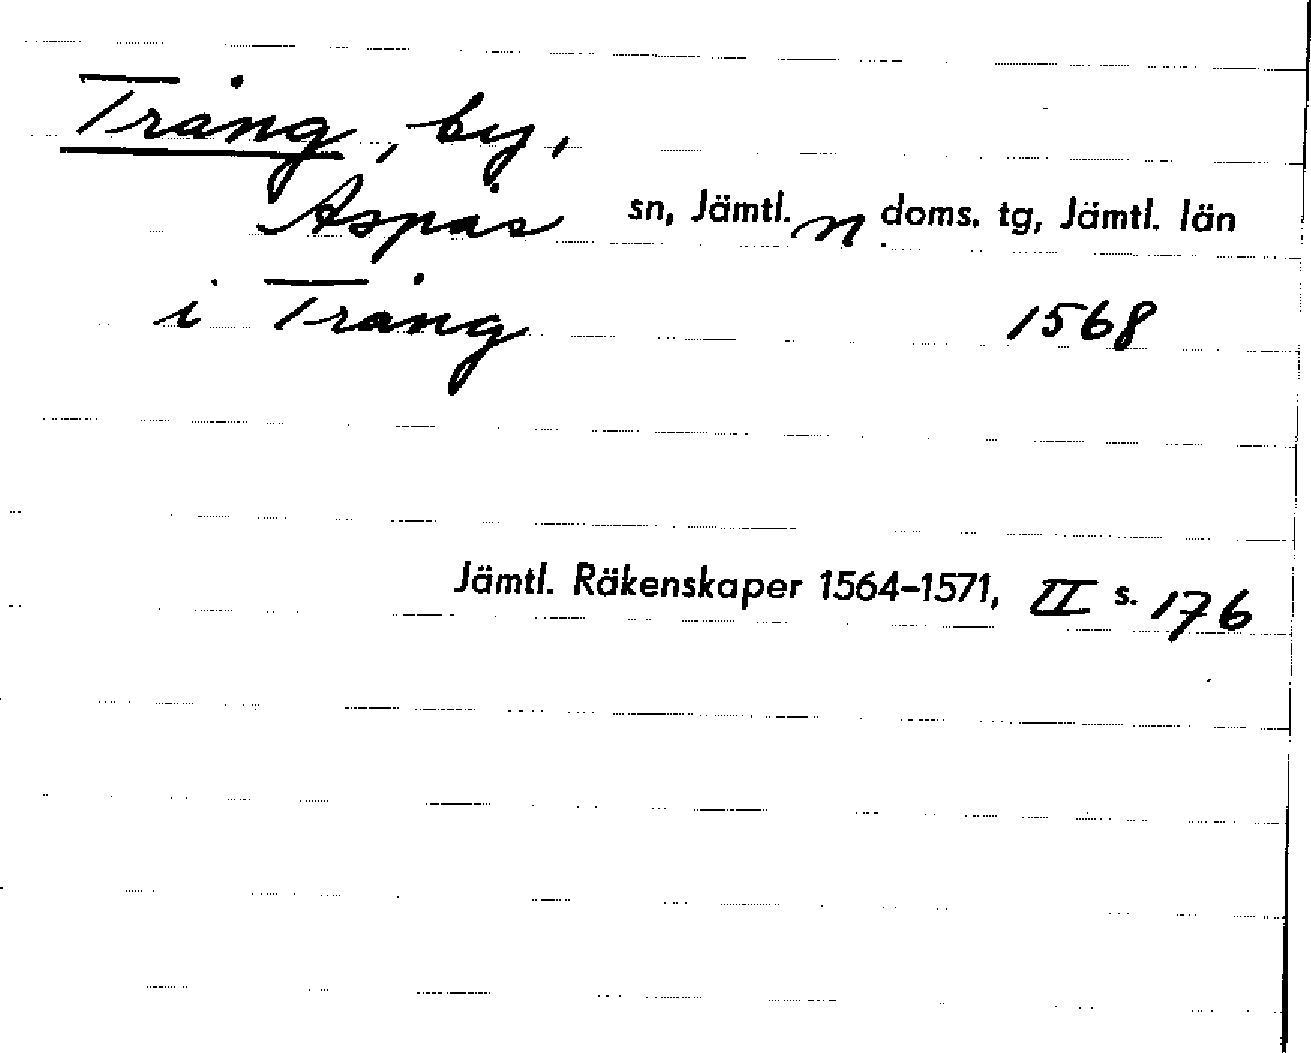 Trång, by,
Aspås sn, Jämtl. n doms. tg, Jämtl. län
i Trång 1568
Jämtl. Räkenskaper 1564-1571, II s. 176